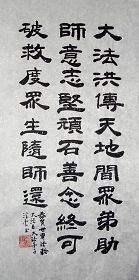 大法洪傳天地閻眾弟助
師意志堅頑石善念終可
破救度眾生隨師還